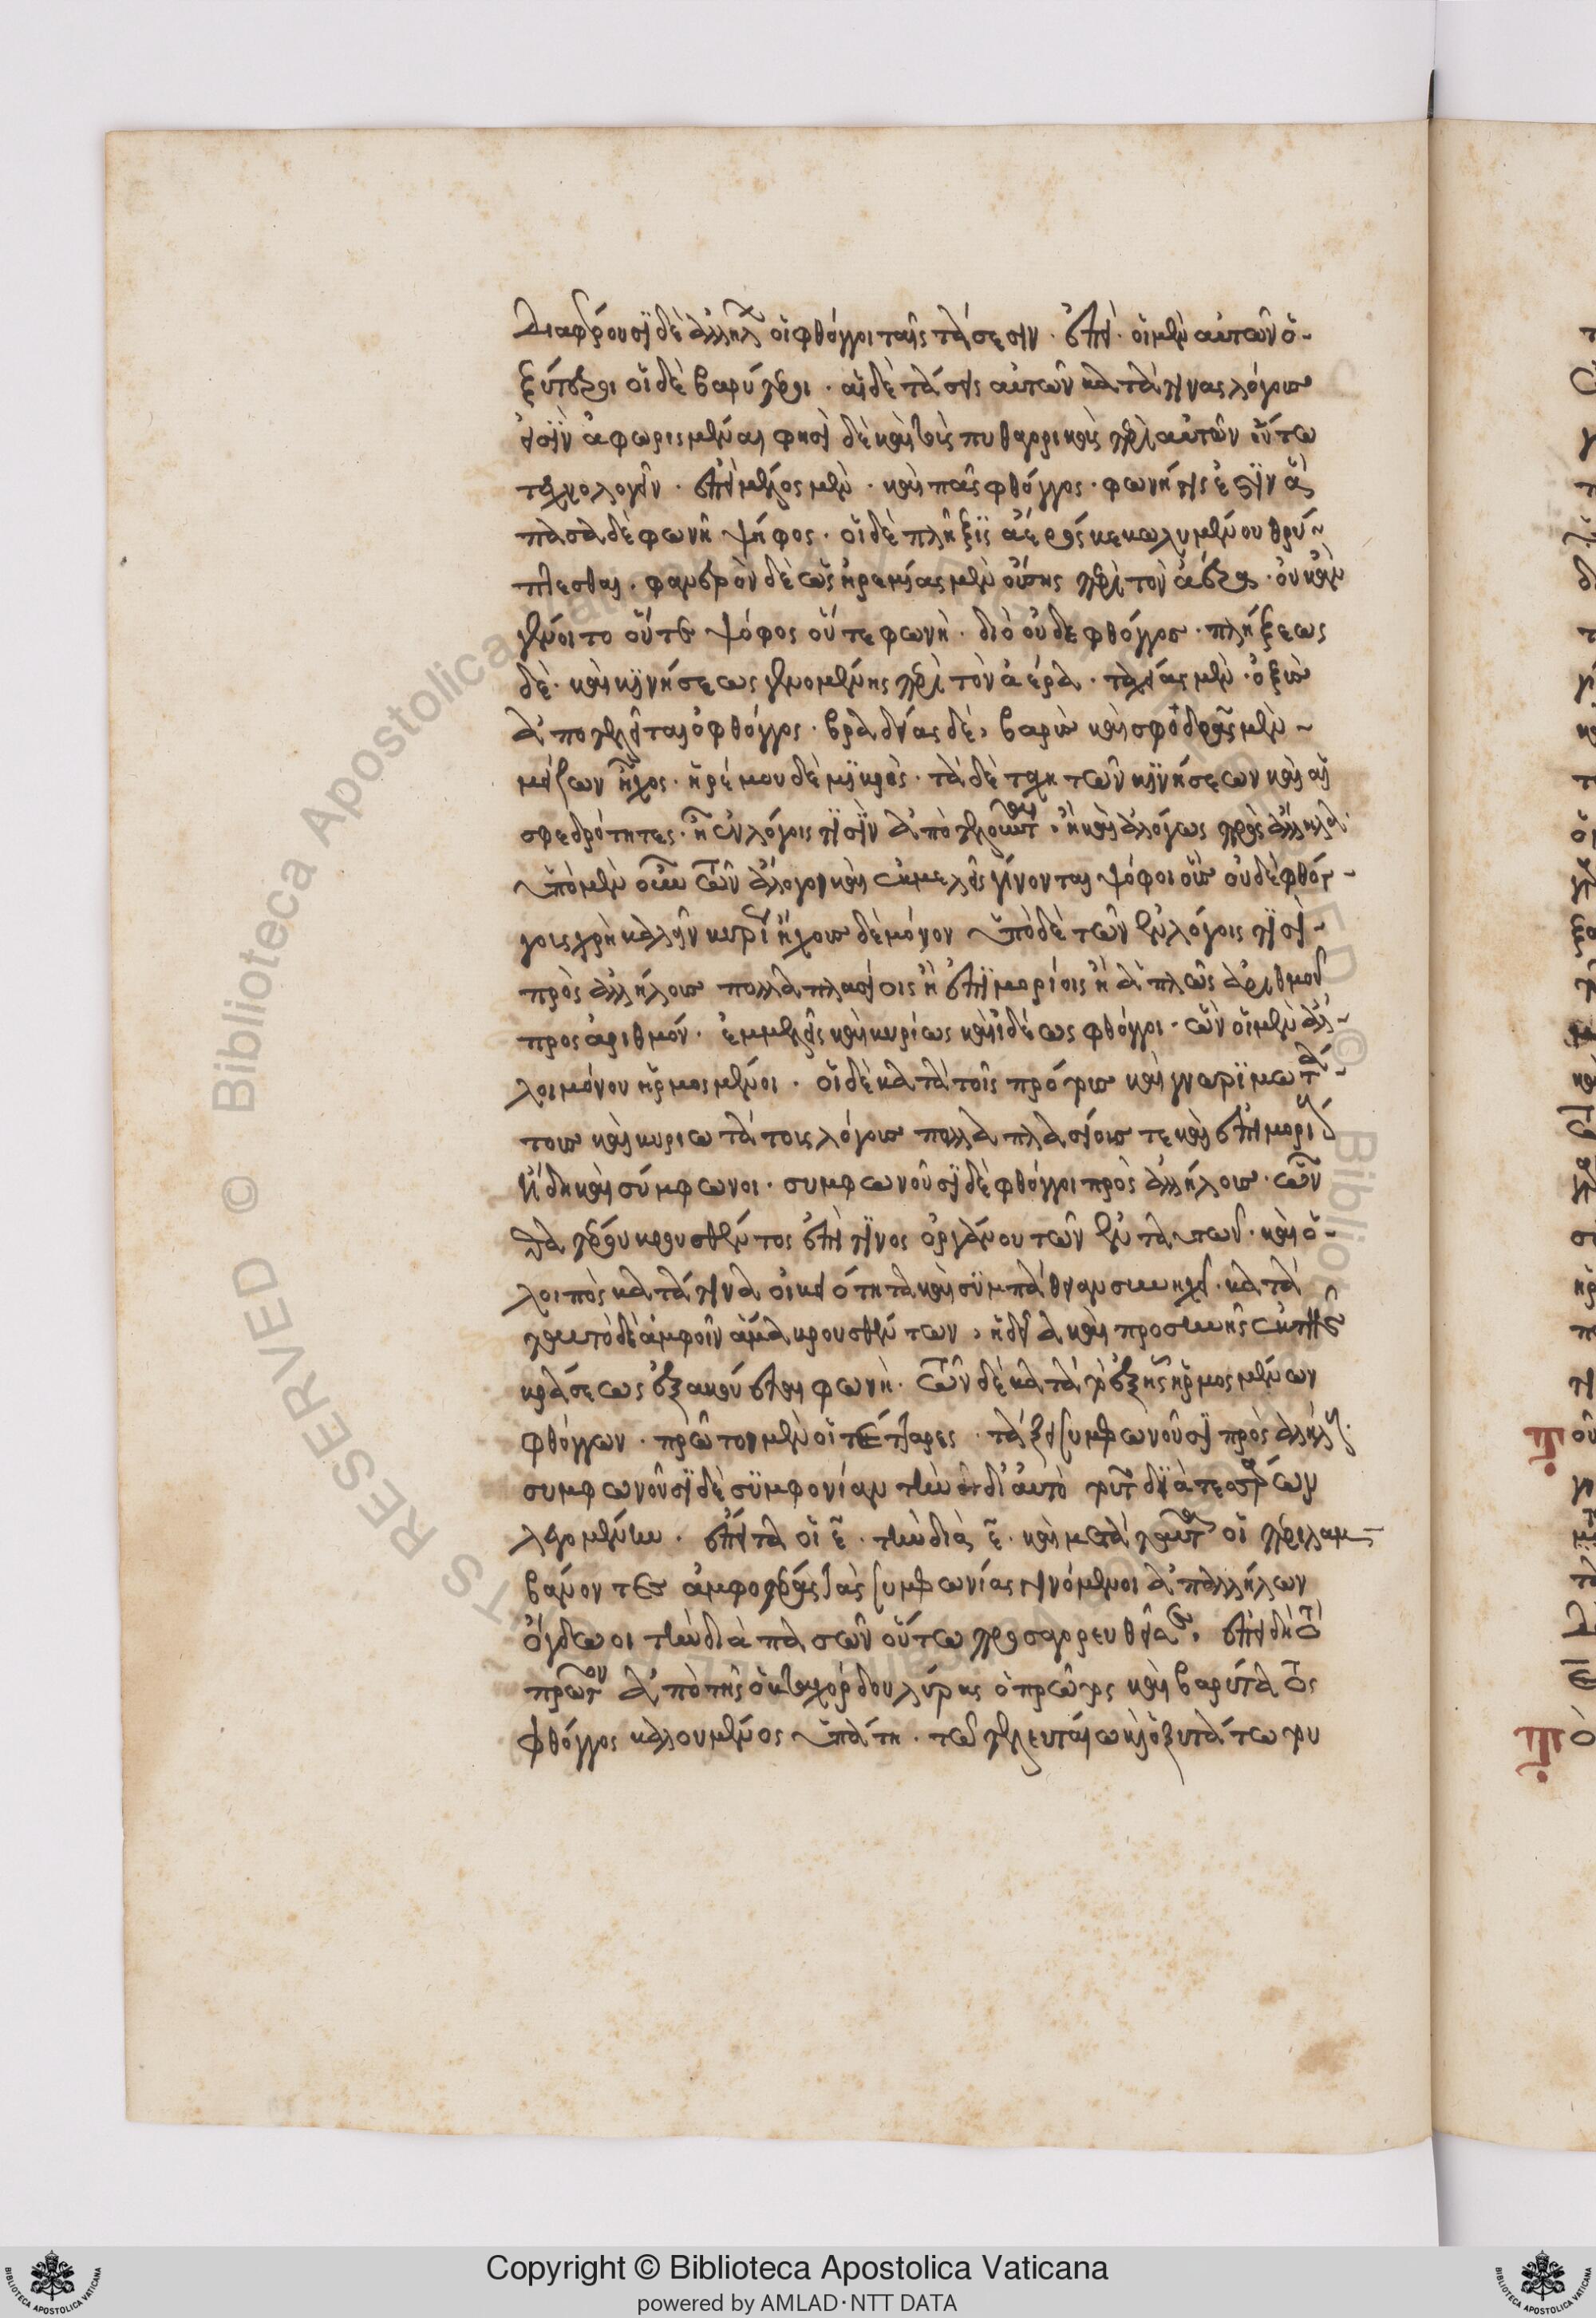 Διαφέρουσι δὲ ἀλλήλων οἱ φθόγγοι ταῖς τάσεσιν. ἐπεὶ. οἱ μὲν αὐτῶν ὀ-
ξύτεροι οἱ δὲ βαρύτεροι. αἱ δὲ τάσεις αὐτῶν κατά τινας λόγους
εἰσὶν ἀφωρισμέναι φησὶ δὲ καὶ τοὺς πυθαγορικοὺς περὶ αὐτῶν οὕτω
τεχνολογεῖν. ἐπεὶ μέλος μὲν. καὶ πᾶς φθόγγος. φωνή τις ἐστὶν ἅ
πασα δὲ φωνὴ ψήφος. οἱ δὲ πλῆξις ἀέρος κεκωλυμένου θρύ-
πτεσθαι. φανερὸν δὲ ὡς ἠρεμίας μὲν οὔσης περὶ τὸν ἀέρα. οὐκ ἂν
γένοιτο οὔτε ψόφος οὔτε φωνὴ. διὸ οὐδε φθόγγος. πλήξεως
δὲ. καὶ κινήσεως γενομένης περὶ τὸν ἀέρα. ταχείας μὲν. ὀξὺς
ἀποτελεῖται ὁ φθόγγος. βραδείας δέ, βαρὺς καὶ σφοδρᾶς μὲν
μείζων ἦχος. ἠρέμου δὲ μικρὸς. τὰ δὲ τάχη τῶν κινήσεων καὶ αἱ
σφεδρότητες. ἢ ἐν λόγοις τισὶν ἀποτελοῦνται. ἢ καὶ ἀλόγως πρὸς ἄλληλα.
ὑπὸ μὲν οὖν τῶν ἀλόγων καὶ ἐκμελεῖς γίνονται ψόφοι οὓς οὐδὲ φθόγ-
γους χρὴ καλεῖν κυρίως ἤχους δὲ μόνον ὑπὸ δὲ τῶν ἐν λόγοις τισὶ
πρὸς ἀλλήλους πολλαπλασίοις ἢ ἐπιμορίοις ἢ ἁπλῶς ἀριθμοῦ
προς αριθμόν. ἐμμελεῖς καὶ κυρίως καὶ ἰδέως φθόγγοι. ὧν οἱ μὲν ἄλ-
λοι μόνον ἡρμοσμένοι. οἱ δὲ κατὰ τοὺς πρώτους καὶ γνωριμωτά-
τους καὶ κυριωτάτους λόγους πολλαπλασίους τε καὶ ἐπιμορίους
ἤδη καὶ σύμφωνοι. συμφωνοῦσι δὲ φθόγγοι πρὸς ἀλλήλους. ὧν
θατέρου κρουσθέντος ἐπί τινος ὀργάνου τῶν ἐντατων. καὶ ὁ
λοιπὸς κατά τινα οἰκειότητα καὶ συμπάθειαν συνηχεῖ. κατὰ
ταυτὸ δὲ ἀμφοῖν ἅμα κρουσθέντων, ἡδεῖα καὶ προσηνὴς ἐκ τῆς
κράσεως ἐξακούεται φωνὴ. τῶν δὲ κατὰ τὸ ἑξῆς ἡρμοσμένων
φθόγγων. πρῶτον μὲν οἱ τέτταρες. τάξει συμφωνοῦσι πρὸς ἀλλήλους.
συμφωνοῦσι δὲ συμφονίαν τὴν δι' αὐτὸ τοῦτο διὰ τεσσάρων
λεγομένην. ἔπειτα οἱ ε̄. τὴν διὰ ε̄. καὶ μετὰ ταῦτα οἱ περιλαμ-
βάνοντες ἀμφοτέρας τὰς συμφωνίας γινόμενοι ἀπ' ἀλλήλων
ὄγδωοι τὴν διὰ πασῶν οὕτω προσαγορευθεῖσαν, ἐπειδὴ τὸ
πρῶτον ἀπὸ τῆς ὀκταχόρδου λύρας ὁ πρῶτος καὶ βαρύτατος
φθόγγος καλούμενος ὑπάτη. τῶ τελευταίω καὶ ὀξυτάτω του